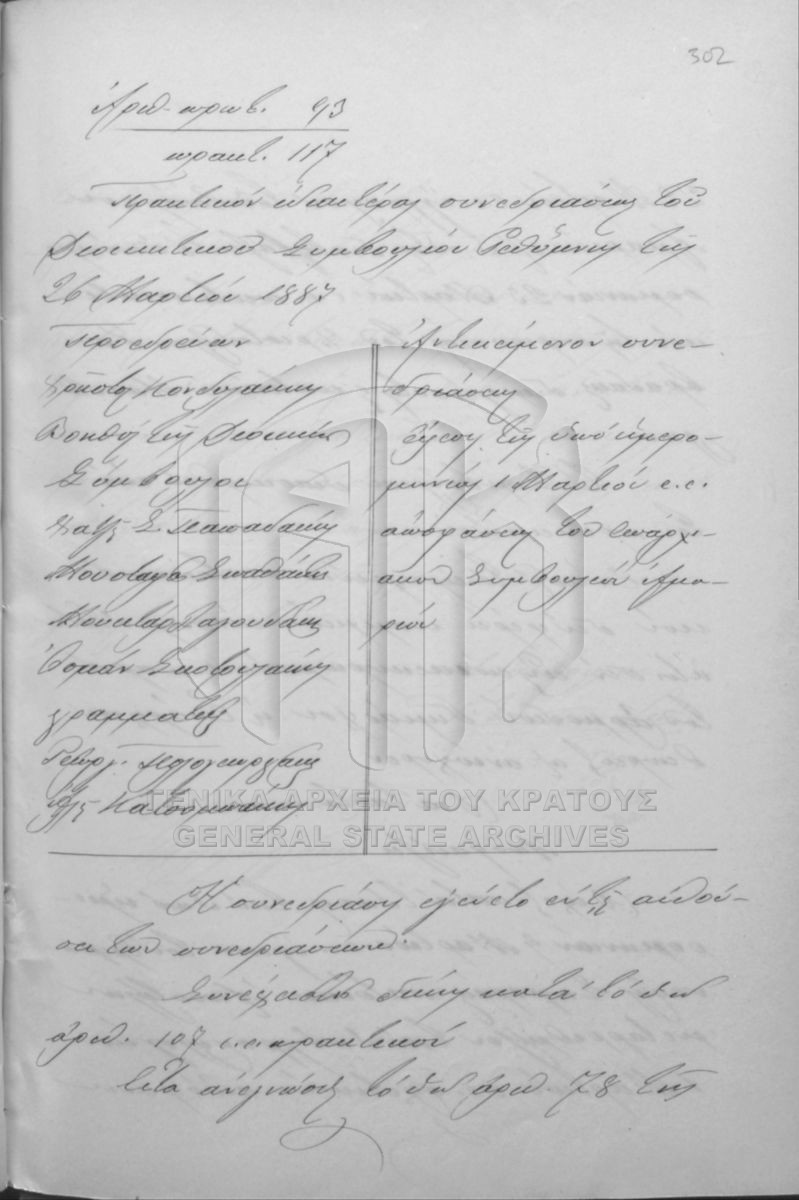 302
Ἀριθ. πρωτ. 93
πρακτ. 117
Πρακτικόν ἰδιαιτέρας συνεδριάσεως τοῦ
Διοικητικοῦ Συμβουλίου Ρεθύμνης τῆς
26 Μαρτίου 1887
Προεδρεύων
Χρῆστος Κονδυλάκης
Βοηθός τῆς Διοικήσ
Σύμβουλοι
Χατζῆ Σ. Παπαδάκης
Μουσταφᾶς Σπαθάκης
Μουχτάρ
Ὀσμάν
Γραμματεῖς
Γεώργ.
Ἀντικείμενον συνε-
δριάσεως
τῆς ὑπό ἡμερο-
μηνίαν 1 Μαρτίου ε.ε.
ἀποφάσεως τοῦ Ἐπαρχι-
ακοῦ Συμβουλίου Ἀμα-
ρίου
ΓΕΝΙΚΑ ΑΡΧΕΙΑ ΤΟΥ ΚΡΑΤΟΥΣ
GENERAL STATE ARCHIVES
Ἡ συνεδρίασις ἐγένετο ἐν τῇ αἰθού-
σῃ τῶν συνεδριάσεων.
Συνέχεια κατά τό ὑπ
ἀριθ. 107 ε.ε. πρακτικόν
Εἶτα ἀνεγνώσθη τό ὑπ ἀριθ. 78 τῆς